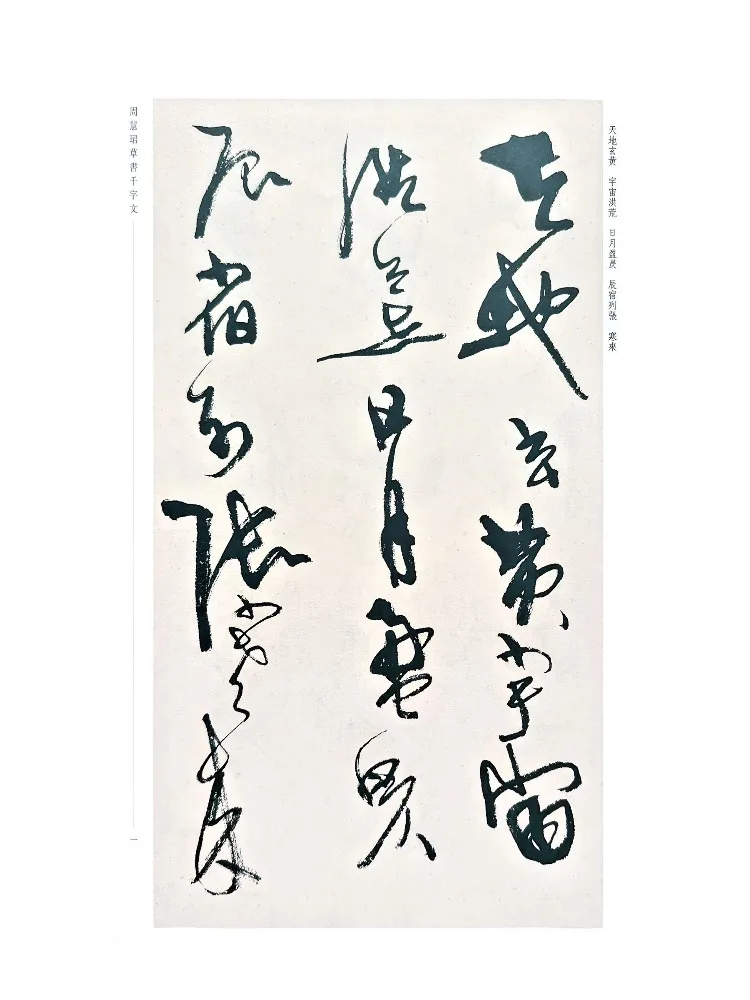 天地玄黃　宇宙洪荒　日月盈昃　辰宿列張　寒來
天地玄黃宇宙
洪荒日月盈昃
辰宿列張寒來
周慧珺草書千字文
一